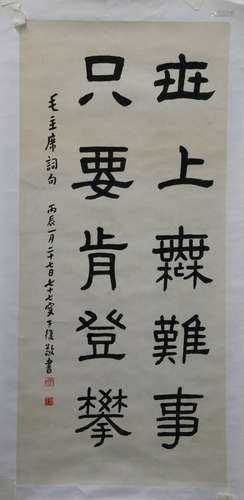 世上無難事
只要肯登攀
毛主席詞句 丙辰一月二十七日七十七叟丁後敬書